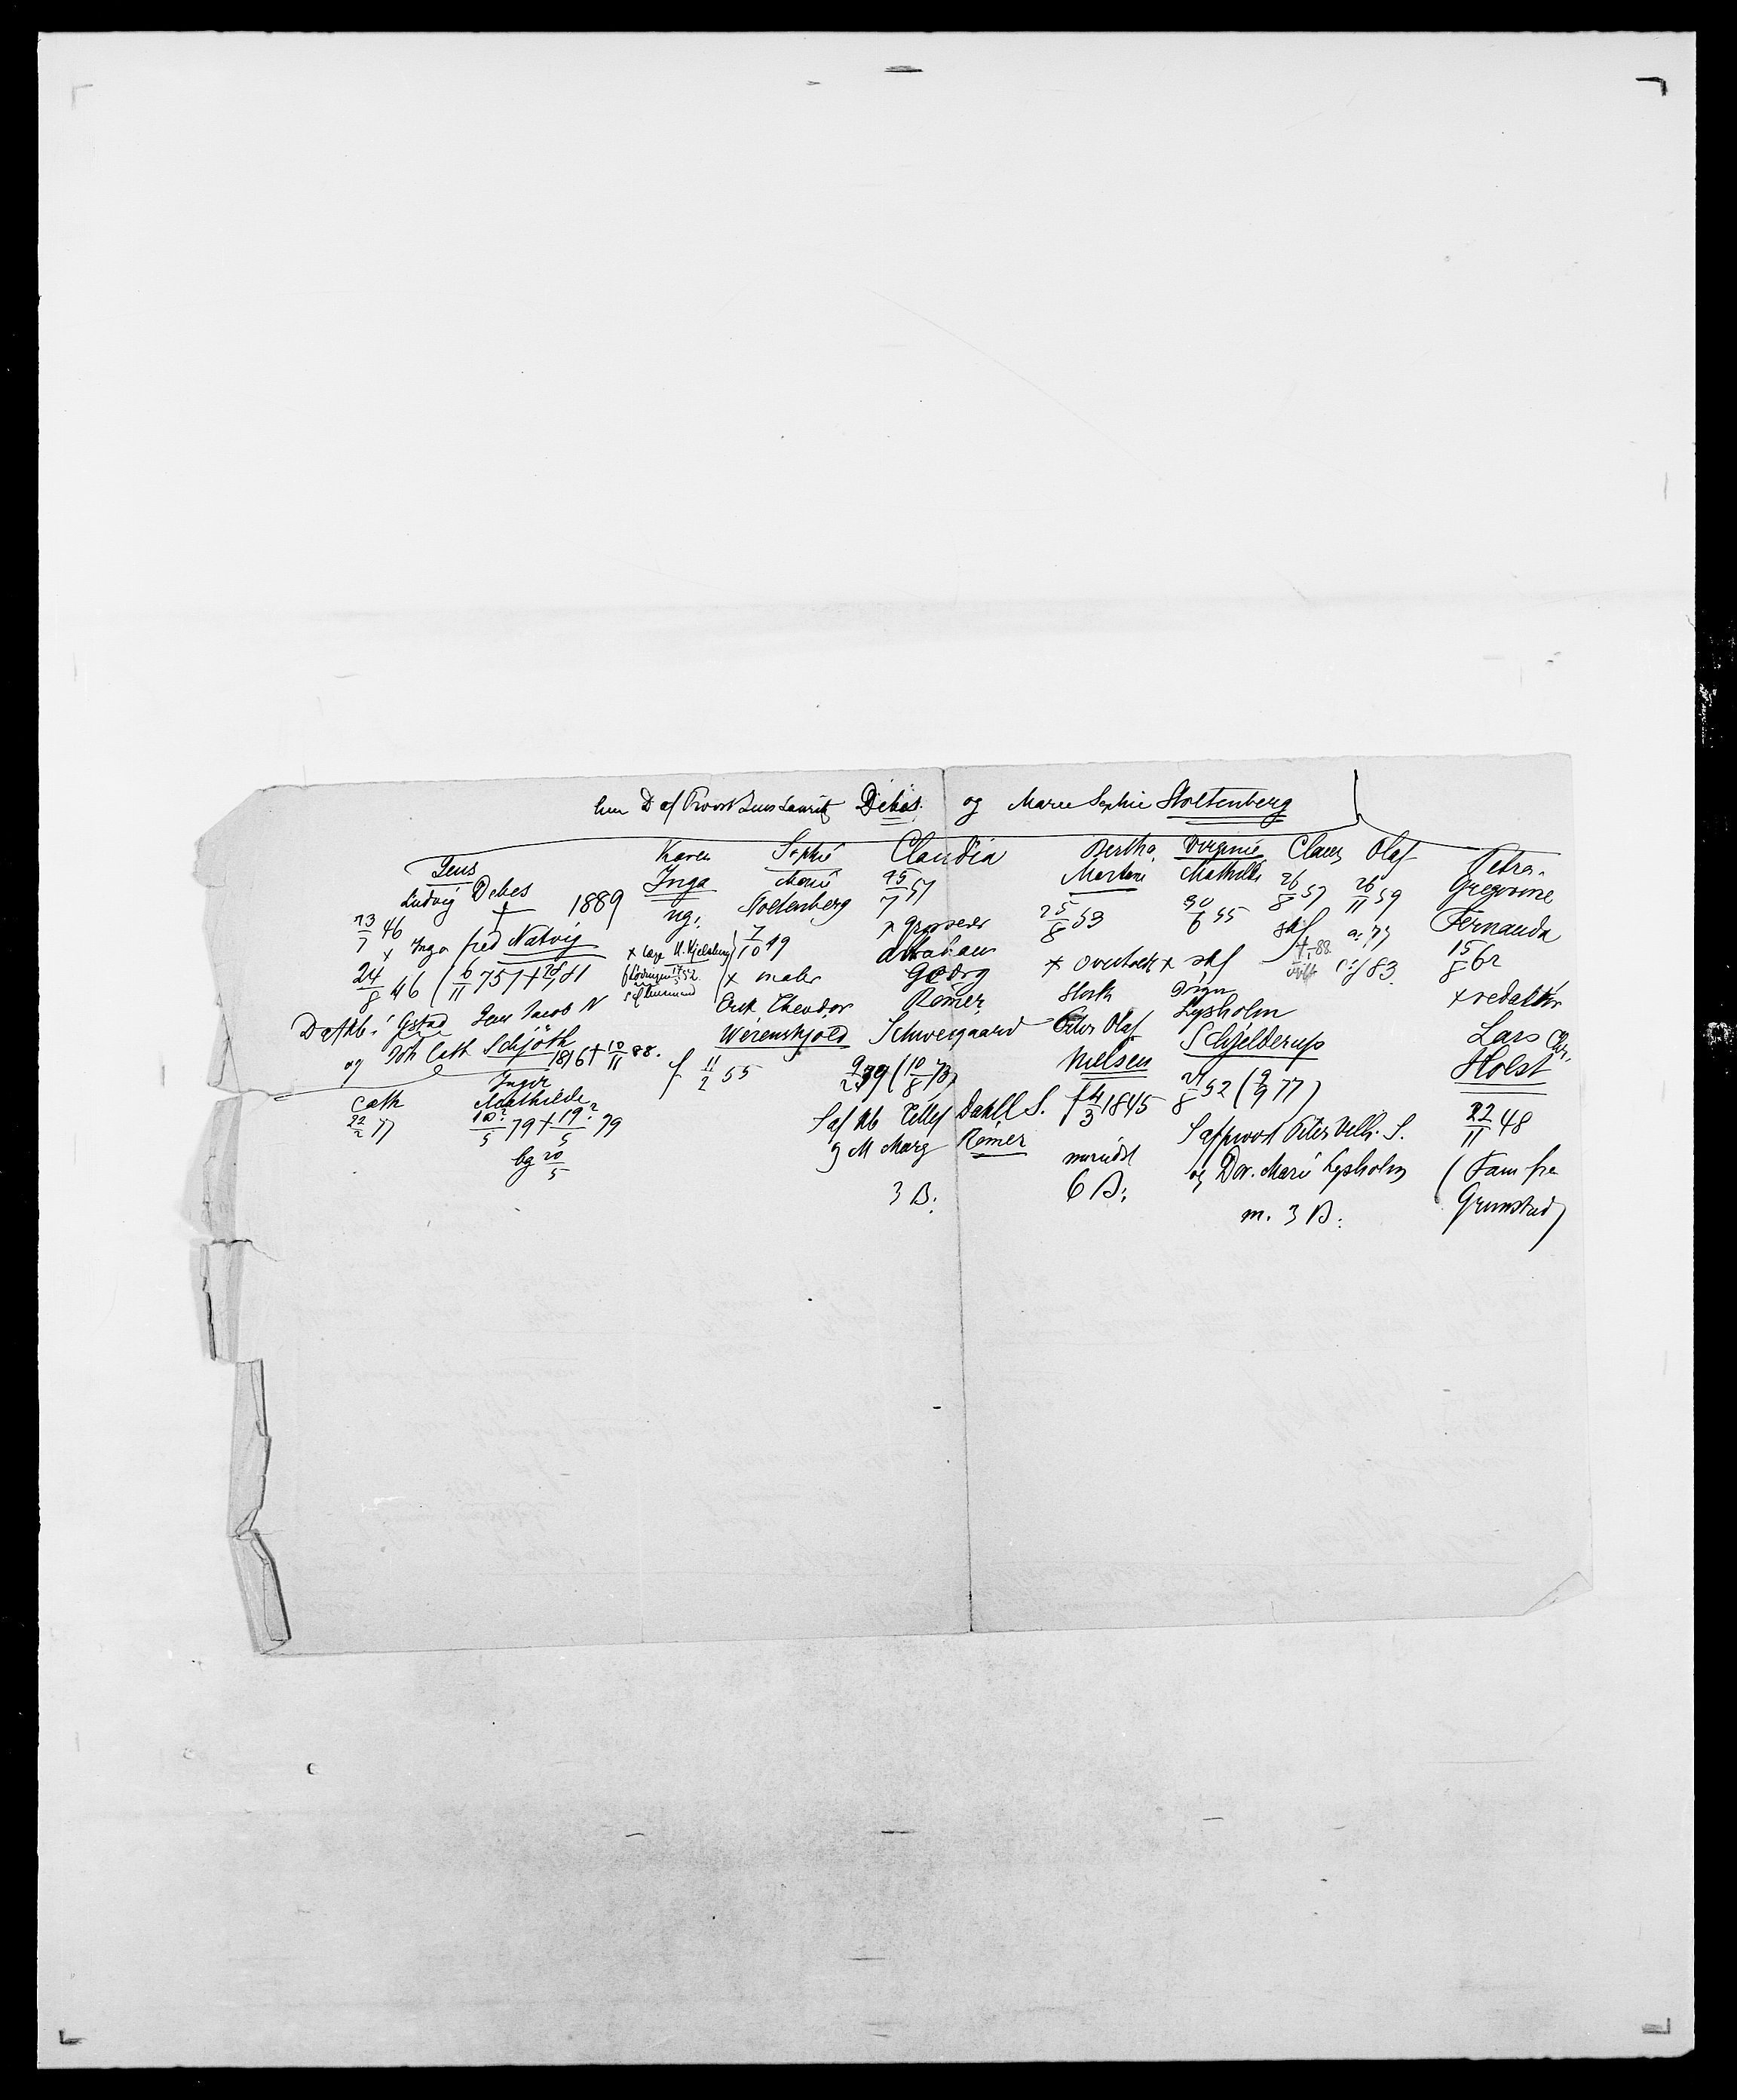 hun D af Provst Jens Laurits Debes. og Maren Sophie Stoltenberg
Jens
Ludvig Debes
† 1889
23/7 46
x Inga fred Natvig
24/8 46 (6/11 75)
D af kb. i Jens Jacob N
og Joh Cath Schjöth
1816 † 10/11 88.
Cath
22/2 77
Inger
Mathilde
10?/5 79 † 19?/5 79
bg 20/5
Karen
Inga
ug.
Sophie
Marie
Stoltenberg
7/10 49
x maler
Erik Theodor
Werenskjold
f 11/2 55
Claudia
25/7 51
x grosserer
Abraham
Georg
Römer
Schwesgaard
9/2 39 (10/8 73)
S af kb Tellef Dahll S.
og M Marg Römer
3 B:
Bertha
Martine
25/8 53
x overtoldb
Peter Olaf
Nielsen
f 4/3 1845
6 B:
Virginie
Mathilde
30/6 55
x skf
Lysholm
Schjelderup
21/8 52 (2/9 77)
S af provst Peter Vilh. S.
og Dor. Marie Lysholm
m. 3 B:
Claus
26/8 57
skf
Olaf
26/11 59
83.
Petra.
Gregorine
Fernanda
15/8 62
x redaktör
Lars Chr.
Holst
22/11 48
(Fam fra
Grimstad)